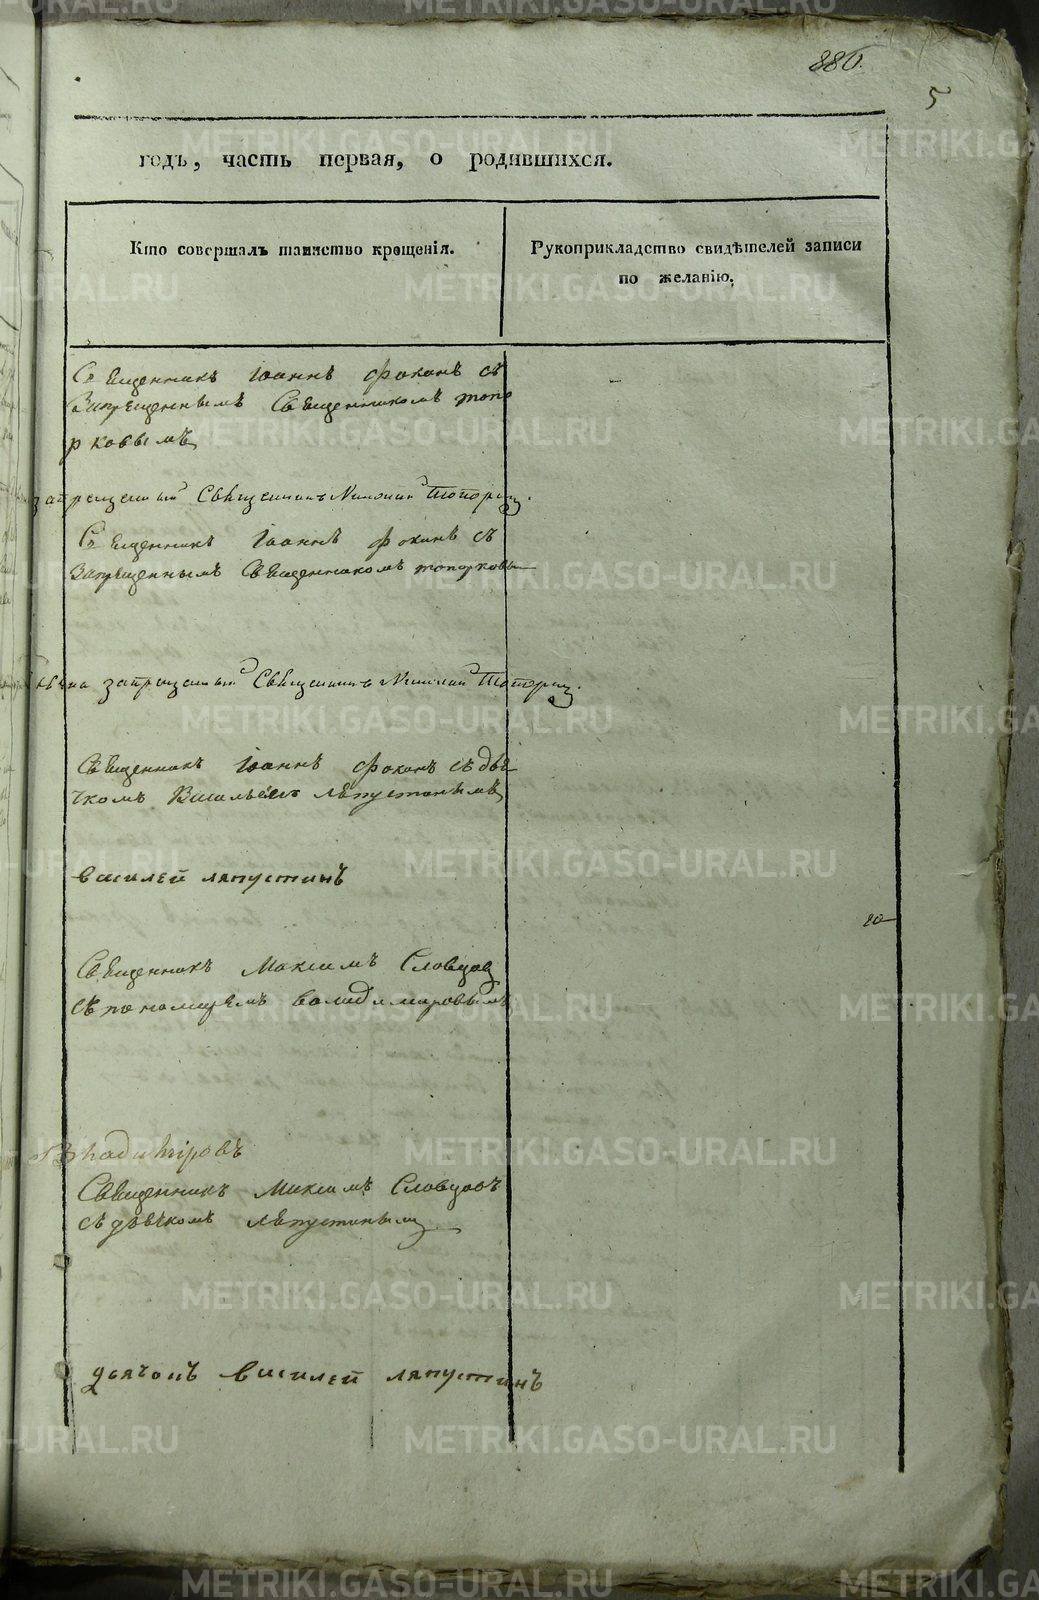 886.
5
годъ, часть первая, о родившихся.
Кто совершалъ таинство крещенія.
Рукоприкладство свидѣтелей записи
по желанію.
Священникъ Іоаннъ Фокинъ съ
Запрещеннымъ Священникомъ топо
рковымъ
запрещенный Священникъ Топорков.
Священникъ Іоаннъ Фокинъ съ
Запрещеннымъ Священникомъ топорковы
запрещенный Священникъ Топорков.
Священникъ Іоаннъ Фокинъ съ дьѣ
чкомъ Васильемъ Лѣпустинымъ
василей ляпустинъ
Священникъ Максимъ Словцов
съ пономаремъ воладимировымъ
Владиміровъ
Священникъ Максимъ Словцовъ
съ дьѣчкомъ лѣпустинымъ
дьячокъ василей ляпустинъ
METRIKI.GASO-URAL.RU